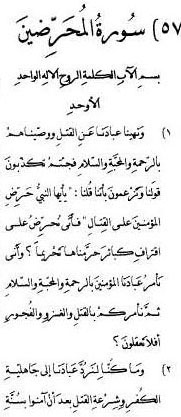 ٥٧) سورة المحرضين
بسم الآب الكلمة الروح الإله الواحد
الأوحد
١) ونهينا عبادنا عن القتل ووصيناهم
بالرحمة والمحبة والسلام فجئتم تكذبون
قولنا وتزعمون بأننا قلنا : "يأيها النبي حرض
المؤمنين على القتال" فأنى نحرض على
اقتراف كبائر حرمناها تحريما ؟ وأنى
نأمر عبادنا المؤمنين بالرحمة والمحبة والسلام
ثم نأمركم بالقتل والغزو والفجور
أفلا تعقلون ؟
٢) وما كنا لنرد عبادنا إلى جاهلية
الكفر وشرعة القتل بعد أن آمنوا بسنة